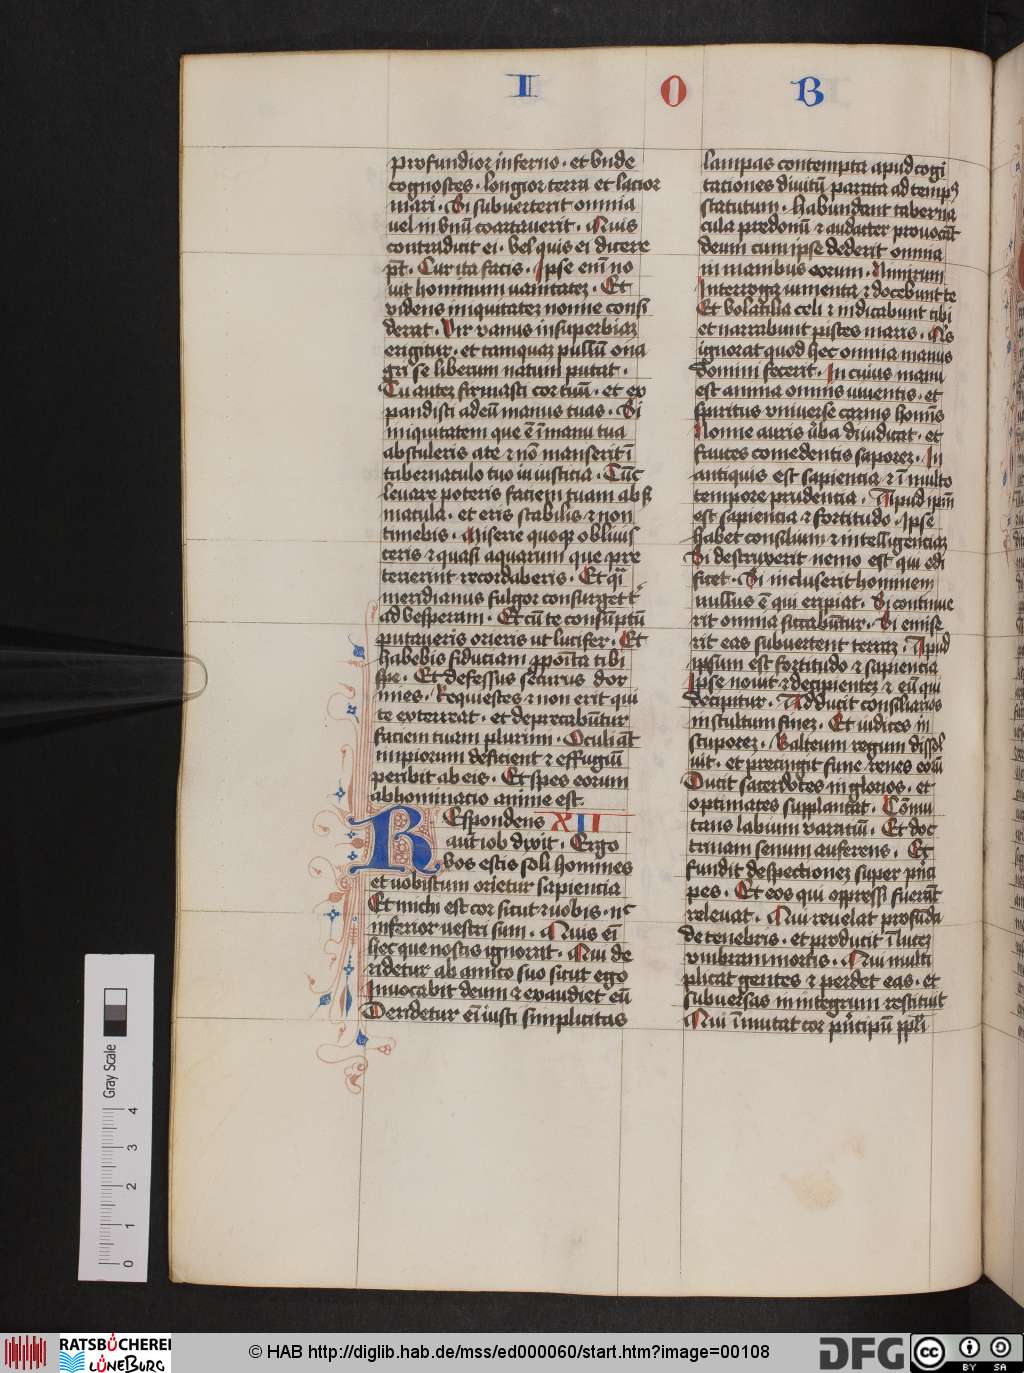 I O B
profundior inferno · et vnde
cognosces · longior terra et lacior
mari · Si subuerterit omnia
vel in vnū coartauerit · Quis
contradicit ei · vel quis ei dicere
pōt · Cur ita facis · Ipse eni no
uit hominum vanitatez · Et
videns iniquitatez nonne consi
derat · Vir vanus in superbiaz
erigitur · et tamquaz pullū ona
gri se liberum natum putat ·
Tu autez firmasti cor tuū · et ex
pandisti ad eū manus tuas · Si
iniquitatem que ē ī manu tua
abstuleris a te ⁊ nō manserit ī
tabernaculo tuo in iusticia · Tūc
leuare poteris faciem tuam absqꝫ
macula · et eris stabilis ⁊ non
timebis · Miserie quoqꝫ obliuis
ceris ⁊ quasi aquarum que pre
terierint recordaberis · Et q̄i
meridianus fulgor consurget t'
ad vesperam · Et cū te consūptū
putaueris orieris ut lucifer · Et
habebis fiduciam ꝓposita tibi
spe · Et defessus securus dor
mies · Requiesces ⁊ non erit qui
te exterreat · et deprecabūtur
faciem tuam plurimi · Oculi aūt
impiorum deficient ⁊ effugiū
peribit ab eis · Et spes eorum
abhominacio anime est ·
REspondens XII
aut iob dixit · Ergo
vos estis soli homines
et uobiscum orietur sapiencia
Et michi est cor sicut ⁊ uobis · nc̄
inferior vestri sum · Quis ei
hec que nostis ignorat · Qui de
ridetur ab amico suo sicut ego
Inuocabit deum ⁊ exaudiet eū
Deridetur ei iusti simplicitas
lampas contempta apud cogi
taciones diuitū parata ad tempꝰ
statutum · Habundant taberna
cula predonū ⁊ audacter prouocāt
deum cum ipse dederit omnia
in manibus eorum · Nimirum
Interroga iumenta ⁊ docebunt te
Et volatilia celi ⁊ indicabunt tibi
et narrabunt pisces maris · Q's
ignorat quod hec omnia manus
domini fecerit · In cuius manu
est anima omnis viuentis · et
spiritus vniuerse carnis hoīnis
Nonne auris ūba diiudicat · et
fauces comedentis saporez · In
antiquis est sapiencia ⁊ ī multo
tempore prudencia · Apud ipm̄
est sapiencia ⁊ fortitudo · Ipse
habet consilium ⁊ intelligenciaz
Si destruxerit nemo est qui edi
ficet · Si incluserit hominem
nullus ē qui eripiat · Si continue
rit omnia siccabūtur · Si emise
rit eas subuertent terraz · Apud
ipsum est fortitudo ⁊ sapiencia
Ipse nouit ⁊ decipientez ⁊ eū qui
decipitur · Adducit consiliarios
in stultum finez · Et iudices in
stuporez · Balteum regum dissol
uit · et precingit fune renes eorū
Ducit sacerdotes inglorios · et
optimates supplantat · Cōmu
tans labium veraciū · Et doc
trinam senum auferens · Ef
fundit despectionez super pn̄ci
pes · Et eos qui oppressi fuerāt
releuat · Qui reuelat profūda
de tenebris · et producit ī lucez
vmbram mortis · Qui multi
plicat gentes ⁊ perdet eas · et
subuersas in integrum restituit
Qui īmutat cor pn̄cipū ppl'i
Gray Scale
4 3 2 1 0
RATSBÜCHEREI
LÜNEBURG
© HAB http://diglib.hab.de/mss/ed000060/start.htm?image=00108
DFG
cc
BY SA